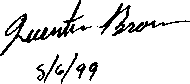 Quentin Brown
5/6/99